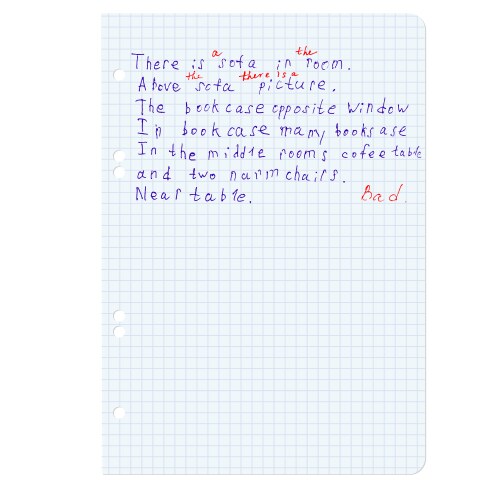 a the
There is sofa in room.
the there is a
Above sofa picture.
The bookcase opposite window
In bookcase many books ase
In the middle rooms cofee table
and two narmchairs.
Near table. Bad.